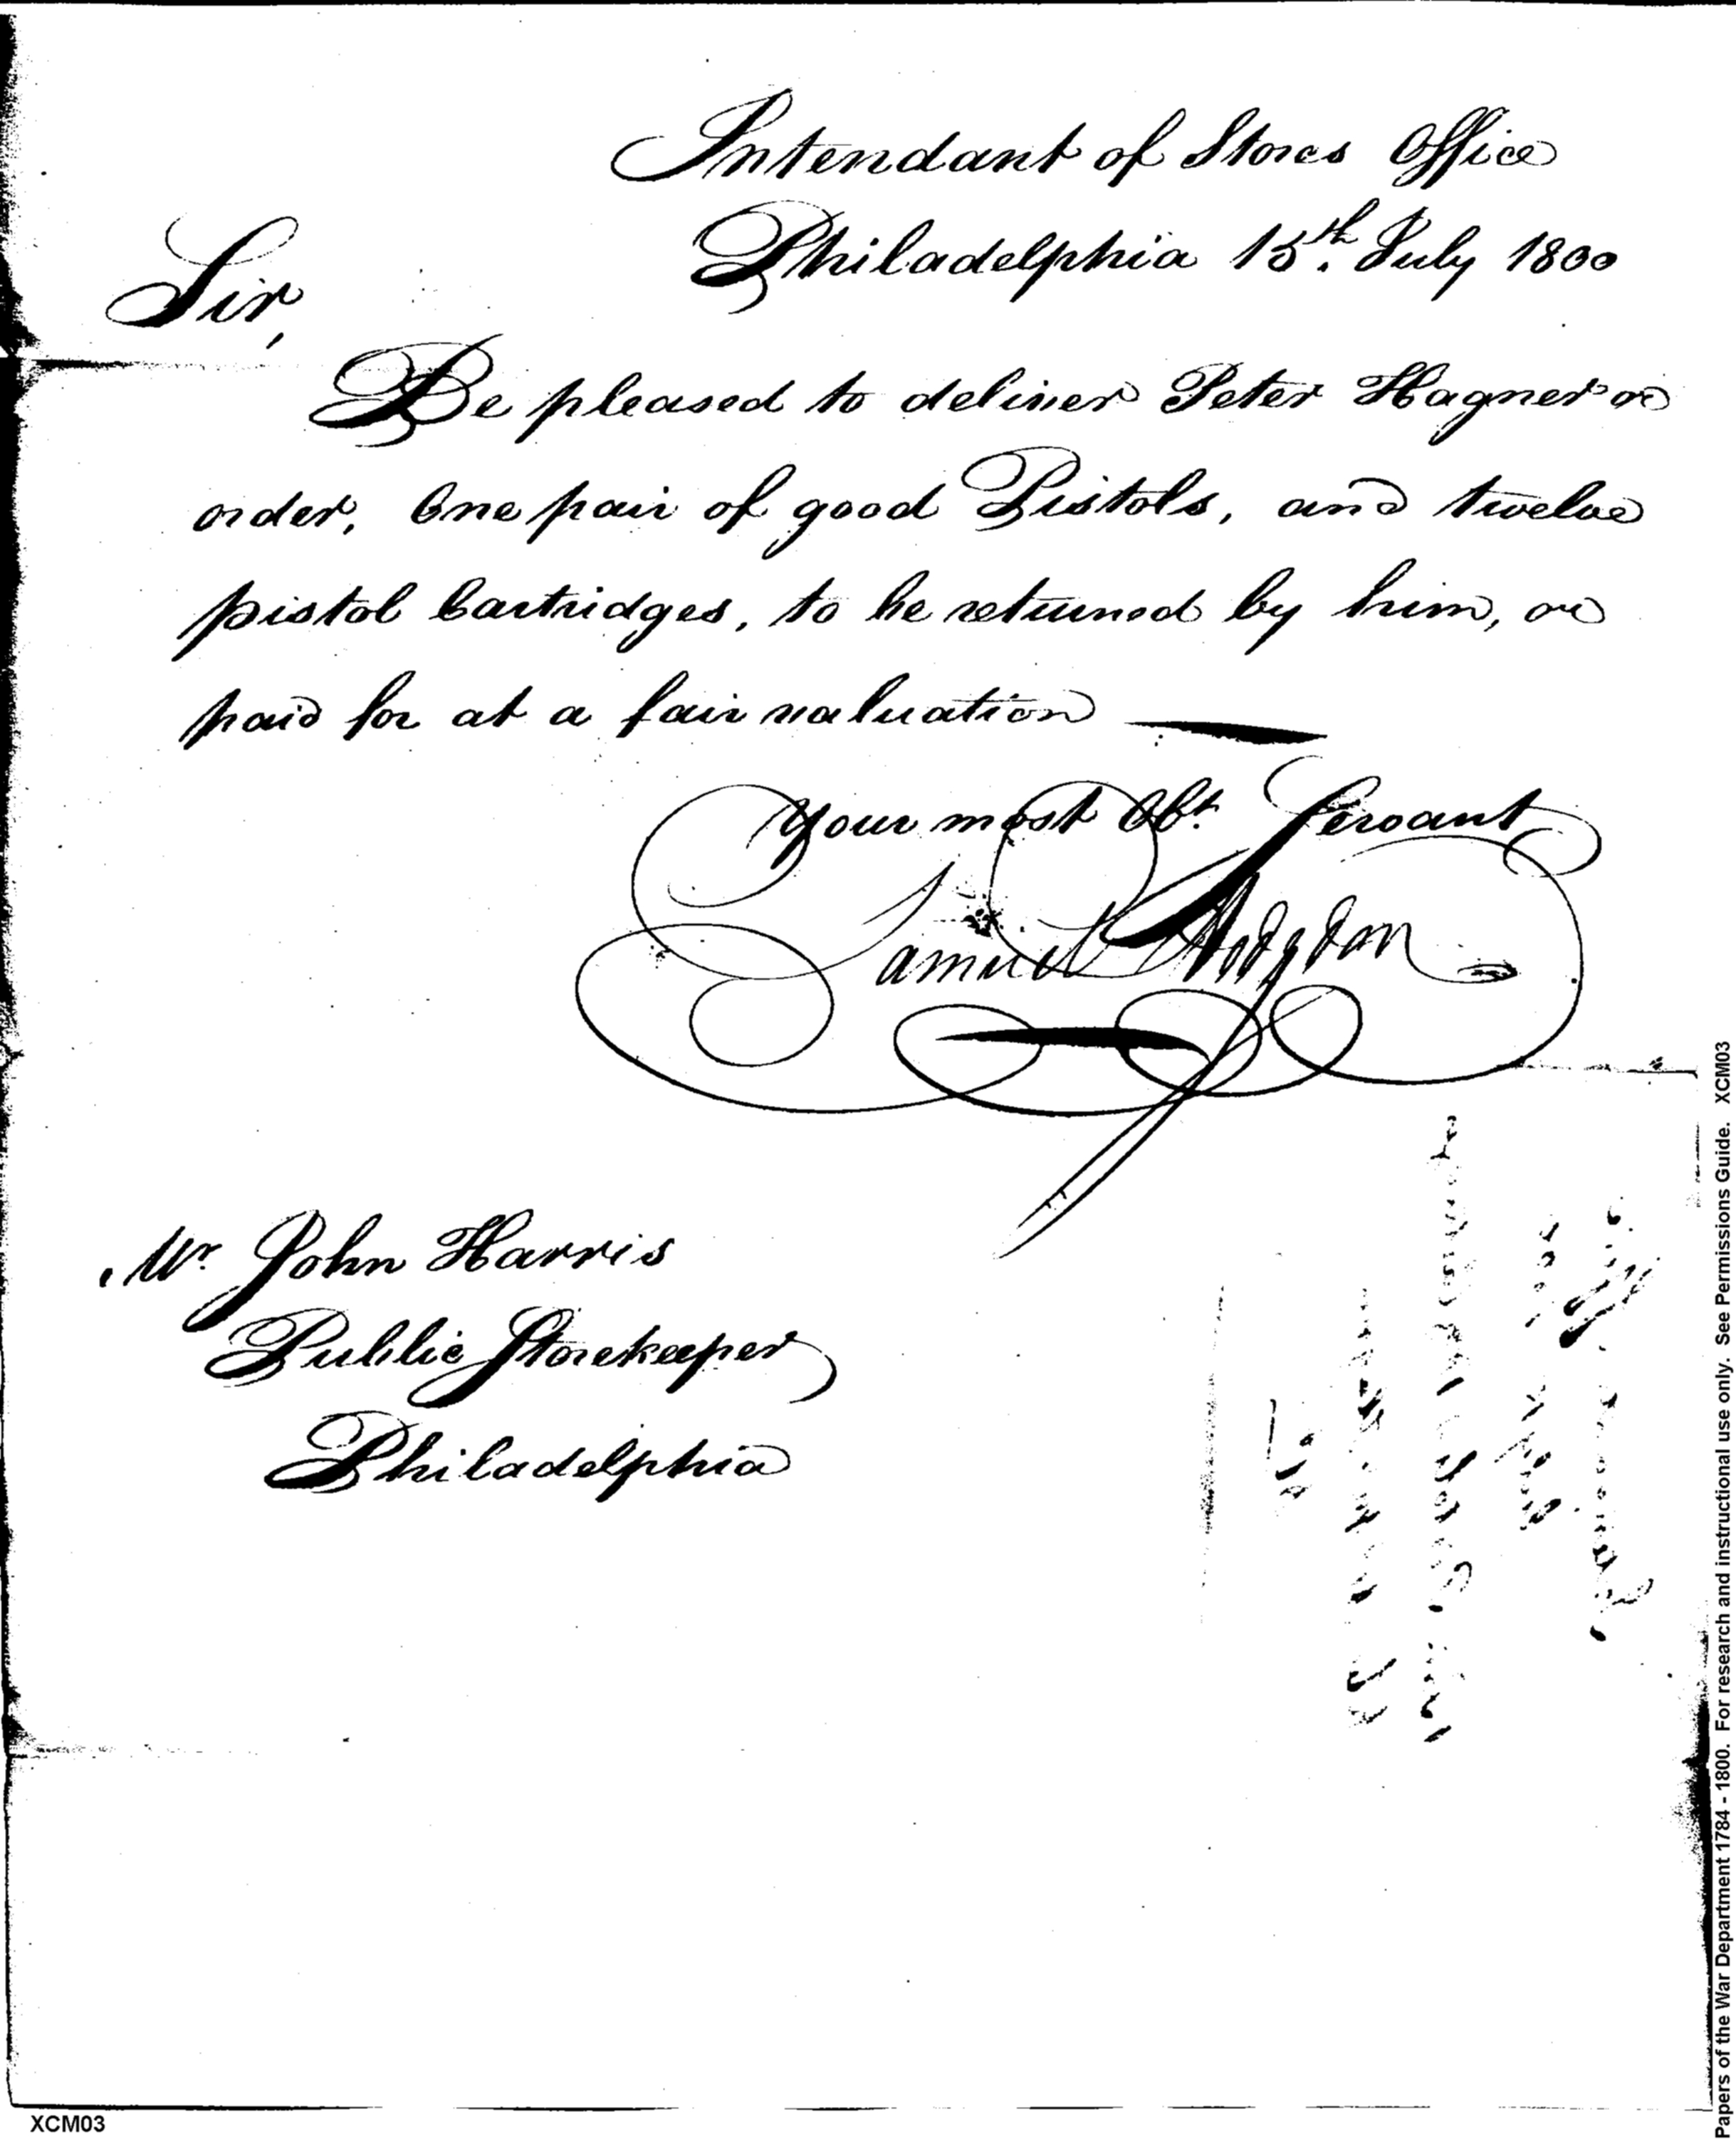 Intendant of Stores Office
Philadelphia 15th. July 1800
Sir,
Be pleased to deliver Peter Hagner or
order, One pair of good Pistols, and twelve
pistol Cartridges, to be returned by him, or
paid for at a fair valuation
Your most Obt. Servant
Samuel Hodgdon
Mr. John Harris
Public Storekeeper
Philadelphia
XCM03
Papers of the War Department 1784 - 1800. For research and instructional use only. See Permissions Guide. XCM03